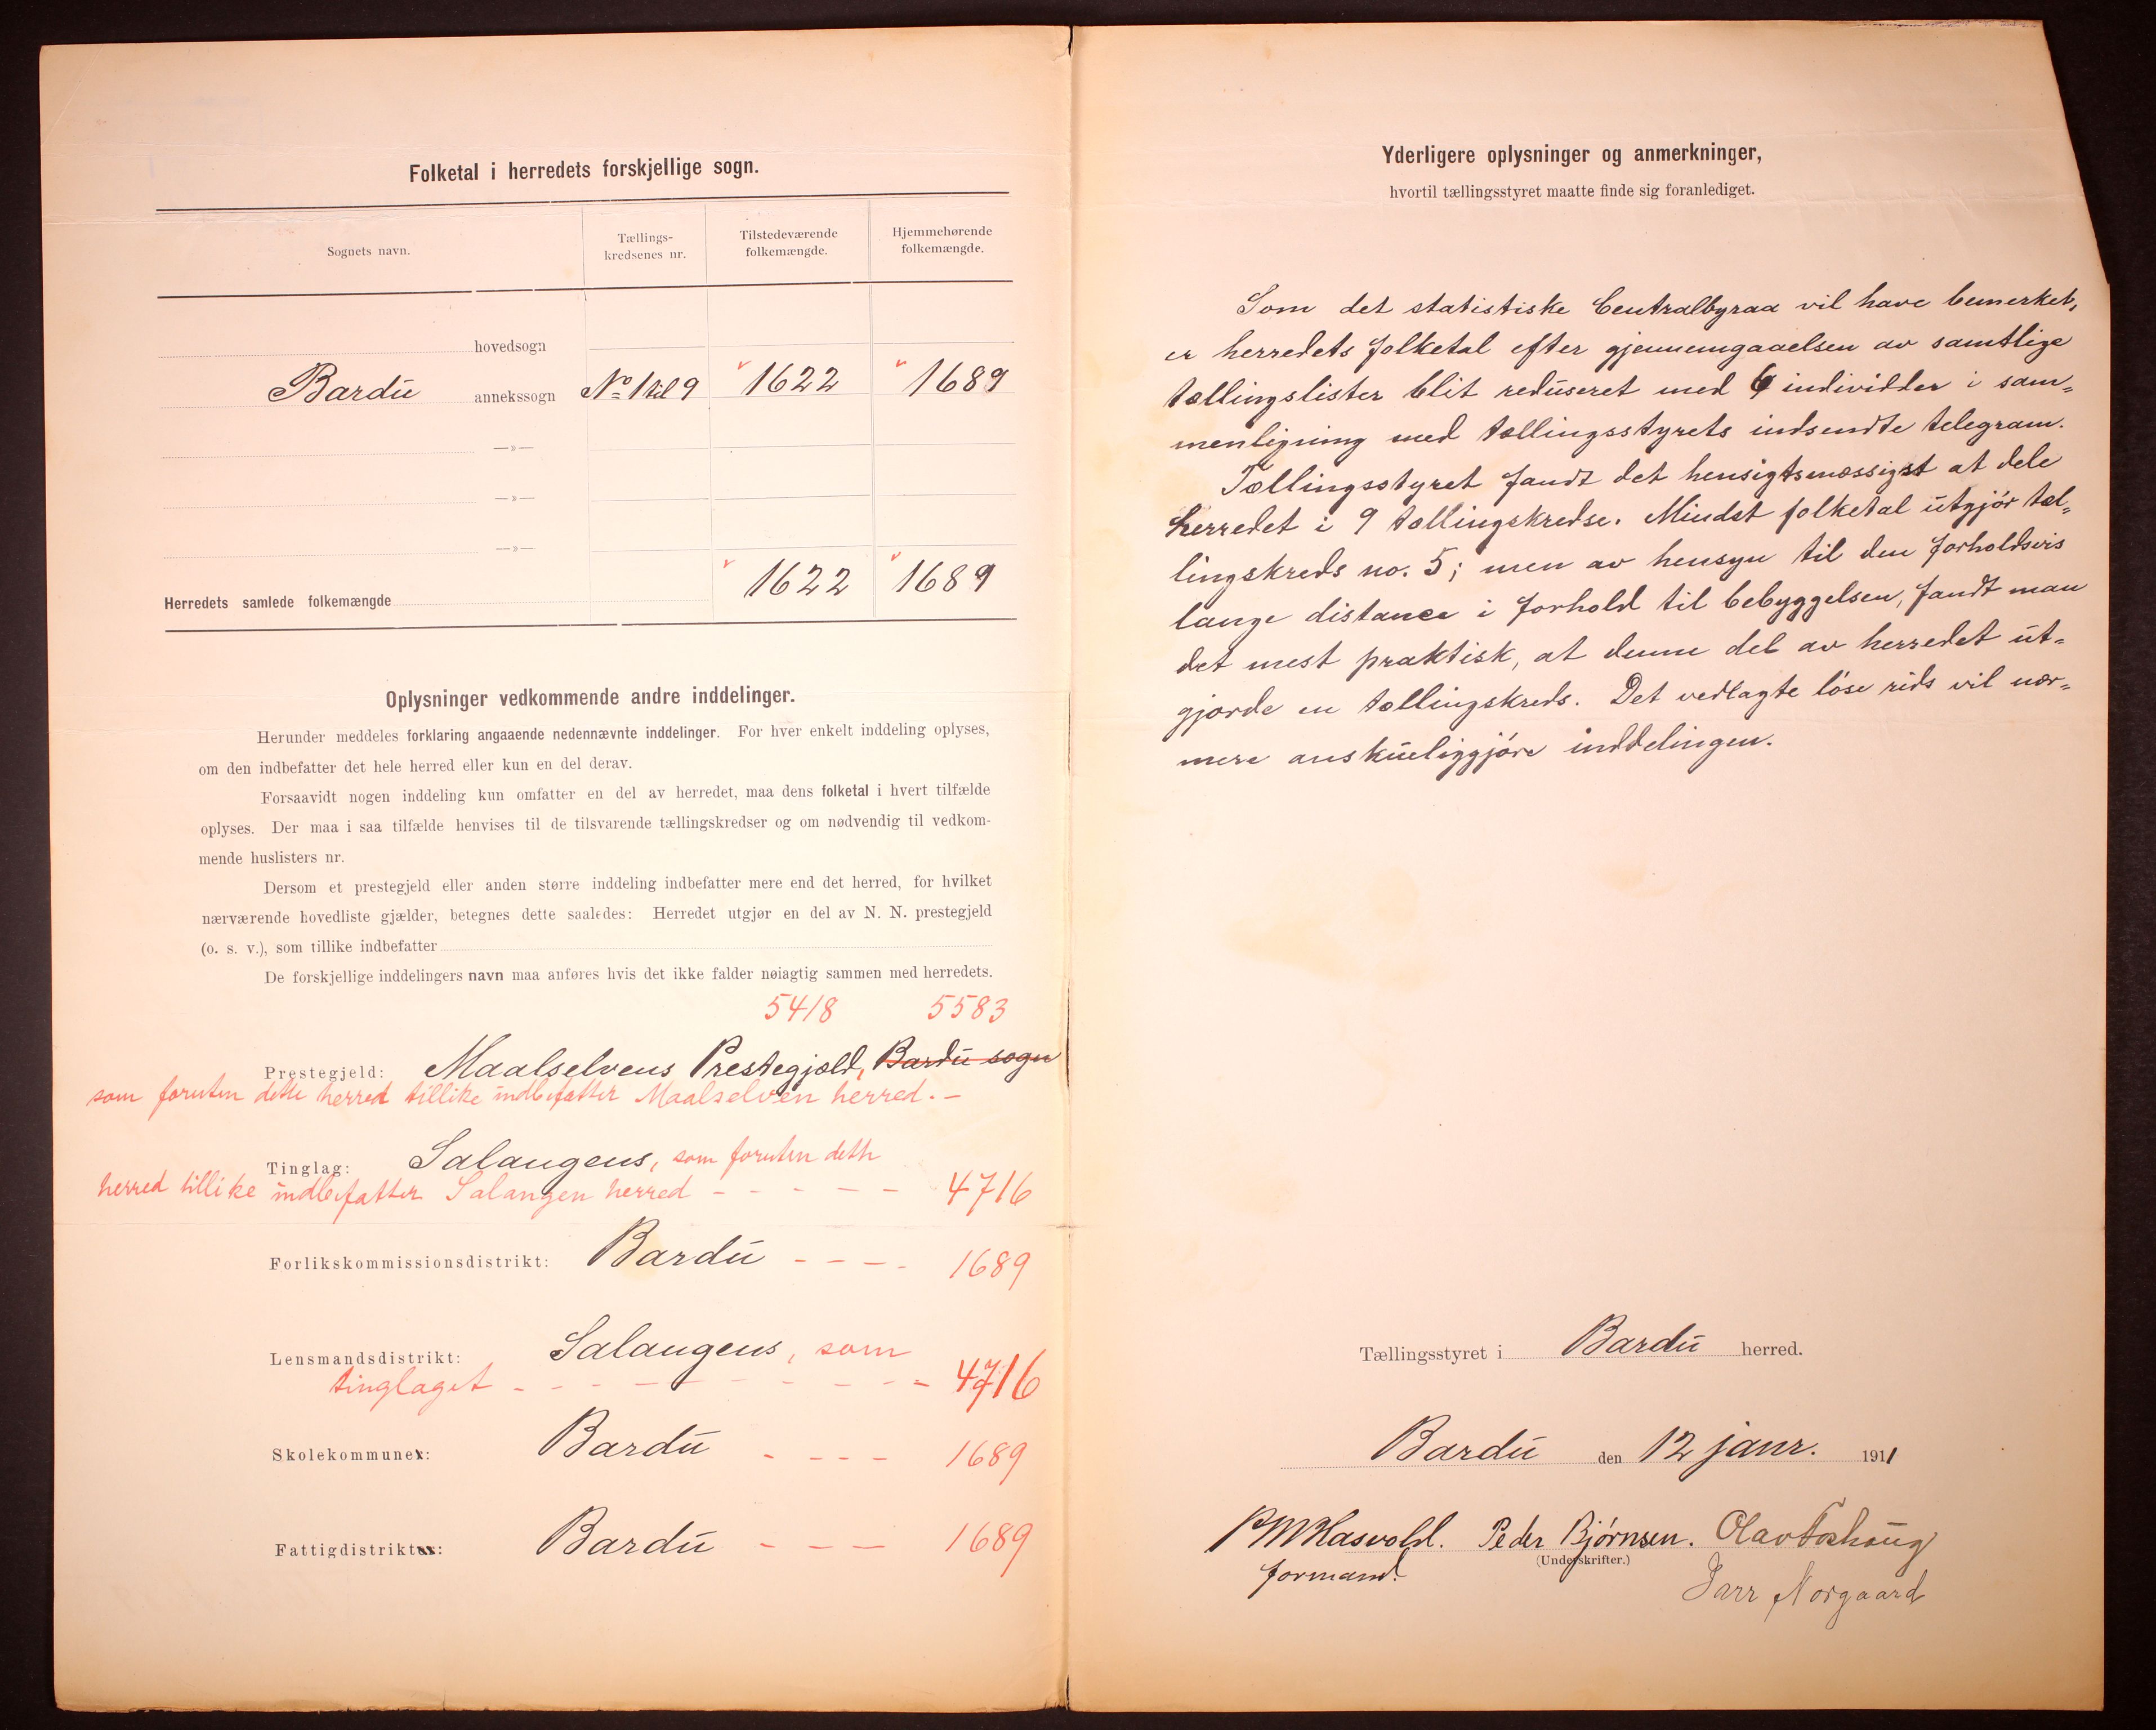 Folketal i herredets forskjellige sogn.
Sognets navn.
Tællings-
kredsenes nr.
Tilstedeværende
folkemængde.
Hjemmehørende
folkemængde.
hovedsogn
Bardu annekssogn No 1 til 9 1622 1689
—»—
—»—
—»—
Herredets samlede folkemængde 1622 1689
Oplysninger vedkommende andre inddelinger.
Herunder meddeles forklaring angaaende nedennævnte inddelinger. For hver enkelt inddeling oplyses,
om den indbefatter det hele herred eller kun en del derav.
Forsaavidt nogen inddeling kun omfatter en del av herredet, maa dens folketal i hvert tilfælde
oplyses. Der maa i saa tilfælde henvises til de tilsvarende tællingskredser og om nødvendig til vedkom-
mende huslisters nr.
Dersom et prestegjeld eller anden større inddeling indbefatter mere end det herred, for hvilket
nærværende hovedliste gjælder, betegnes dette saaledes: Herredet utgjør en del av N. N. prestegjeld
(o. s. v.), som tillike indbefatter
De forskjellige inddelingers navn maa anføres hvis det ikke falder nøiagtig sammen med herredets.
5418 5583
Prestegjeld: Maalselvens Prestegjæld, Bardu sogn
som foruten dette herred tillike indbefatter Maalselven herred. —
Tinglag: Salangens, som foruten dette
herred tillike indbefatter Salangen herred - - - - - 4716
Forlikskommissionsdistrikt: Bardu - - - - 1689
Lensmandsdistrikt: Salangens, som
tinglaget - - - - - - - - - - 4716
Skolekommuner: Bardu - - - - 1689
Fattigdistrikter: Bardu - - - 1689
Yderligere oplysninger og anmerkninger,
hvortil tællingsstyret maatte finde sig foranlediget.
Som det statistiske Centralbyraa vil have bemerket,
er herredets folketal efter gjennemgaaelsen av samtlige
tællingslister blit reduseret med 6 individer i sam=
menligning med tællingsstyrets indsendte telegram.
Tællingsstyret fandt det hensigtsmæssigst at dele
herredet i 9 tællingskredse. Mindst folketal utgjör tæl=
lingskreds no. 5; men av hensyn til den forholdsvis
lange distance i forhold til bebyggelsen, fandt man
det mest praktisk, at denne del av herredet ut=
gjorde en tællingskreds. Det vedlagte löse rids vil nær=
mere anskueliggjöre inddelingen.
Tællingsstyret i Bardu herred.
Bardu den 12 janr. 1911
P M Hasvold. Peder Bjørnsen. Olav Foshaug
(Underskrifter.)
formand.
Jarr Norgaard